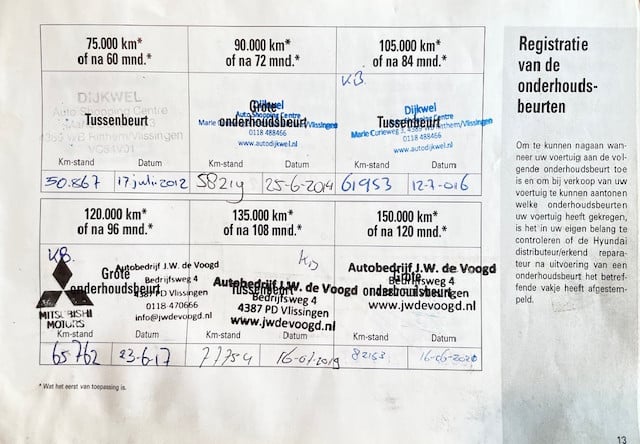 75.000 km*
of na 60 mnd.*
DIJKWEL
Auto Shopping Centre
Tussenbeurt
Km-stand Datum
50.867 17 juli 2012
90.000 km*
of na 72 mnd.*
Dijkwel
Grote
Auto Shopping Centre
onderhoudsbeurt
0118 488466
www.autodijkwel.nl
Km-stand Datum
58219 25-6-2014
105.000 km*
of na 84 mnd.*
KB.
Dijkwel
Tussenbeurt
0118 488466
www.autodijkwel.nl
Km-stand Datum
61953 12-7-016
120.000 km*
of na 96 mnd.*
KB.
Grote
onderhoudsbeurt
Autobedrijf J.W. de Voogd
Bedrijfsweg 4
4387 PD Vlissingen
0118 470666
info@jwdevoogd.nl
MITSUBISHI
MOTORS
Km-stand Datum
65762 23-6-17
135.000 km*
of na 108 mnd.*
Autobedrijf J.W. de Voogd
Tussenbeurt
Bedrijfsweg 4
4387 PD Vlissingen
www.jwdevoogd.nl
Km-stand Datum
77754 16-07-2019
150.000 km*
of na 120 mnd.*
Autobedrijf J.W. de Voogd
Grote
Bedrijfsweg 4
onderhoudsbeurt
www.jwdevoogd.nl
Km-stand Datum
* Wat het eerst van toepassing is.
Registratie
van de
onderhouds-
beurten
Om te kunnen nagaan wan-
neer uw voertuig aan de vol-
gende onderhoudsbeurt toe
is en om bij verkoop van uw
voertuig te kunnen aantonen
welke onderhoudsbeurten
uw voertuig heeft gekregen,
is het in uw eigen belang te
controleren of de Hyundai
distributeur/erkend repara-
teur na uitvoering van een
onderhoudsbeurt het betref-
fende vakje heeft afgestem-
peld.
13